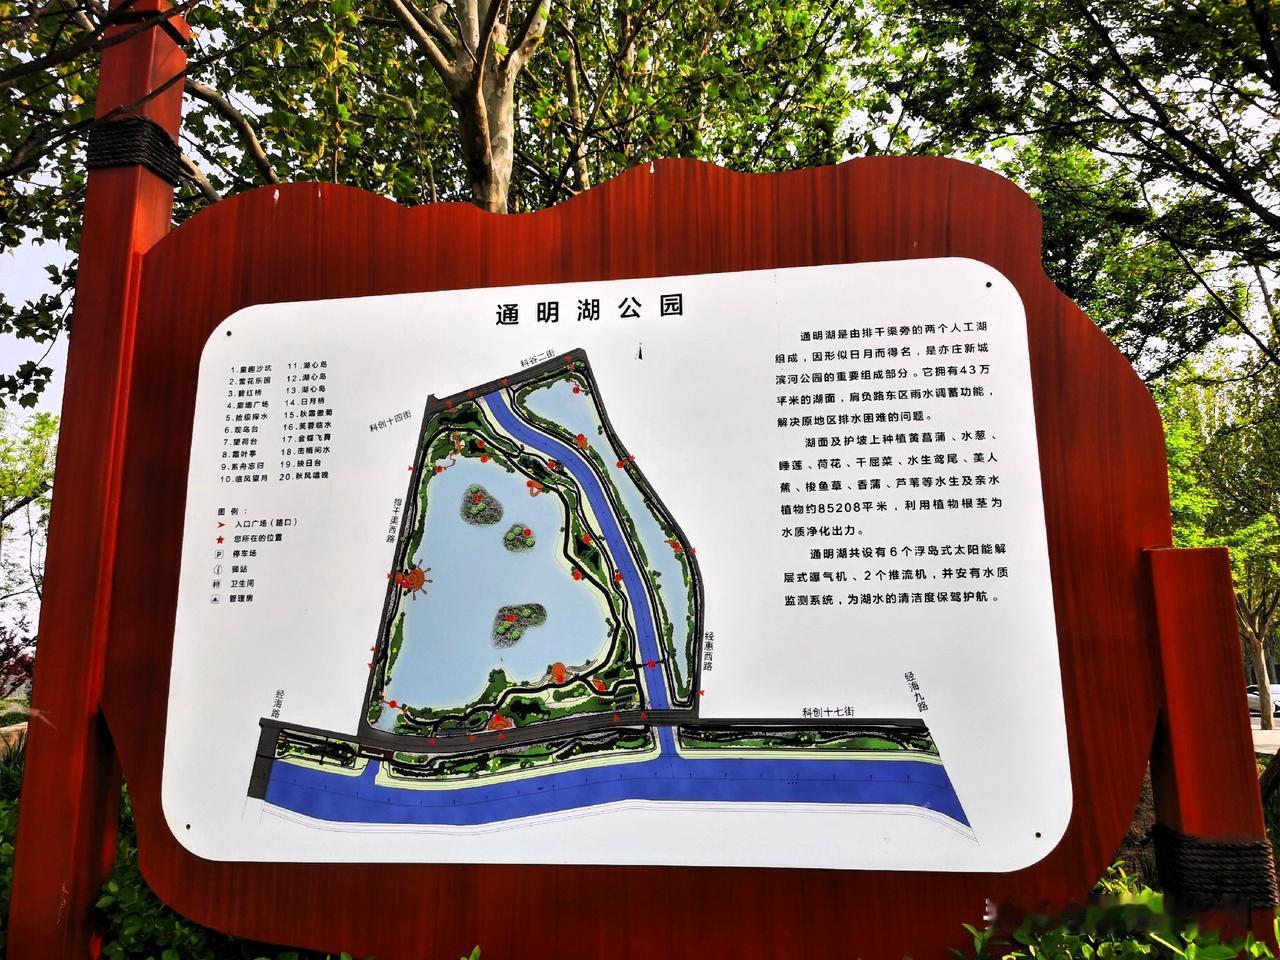 通明湖公园
1.童趣沙坑
2.雪花乐园
3.碧红桥
4.廊塘广场
5.拾级探水
6.观鸟台
7.望荷台
8.霜叶亭
9.系舟忘归
10.临风望月
11.湖心岛
12.湖心岛
13.湖心岛
14.日月桥
15.秋霜傲菊
16.芙蓉临水
17.金蝶飞舞
18.击楫闻水
19.映日台
20.秋风唱晚
图例：
入口广场（路口）
您所在的位置
P 停车场
i 驿站
卫生间
管理房
科谷二街
科创十四街
排干渠西路
经惠西路
经海路
科创十七街
经海九路
通明湖是由排干渠旁的两个人工湖
组成，因形似日月而得名，是亦庄新城
滨河公园的重要组成部分。它拥有43万
平米的湖面，肩负路东区雨水调蓄功能，
解决原地区排水困难的问题。
湖面及护坡上种植黄菖蒲、水葱、
睡莲、荷花、千屈菜、水生鸢尾、美人
蕉、梭鱼草、香蒲、芦苇等水生及亲水
植物约85208平米，利用植物根茎为
水质净化出力。
通明湖共设有6个浮岛式太阳能解
层式曝气机、2个推流机，并安有水质
监测系统，为湖水的清洁度保驾护航。